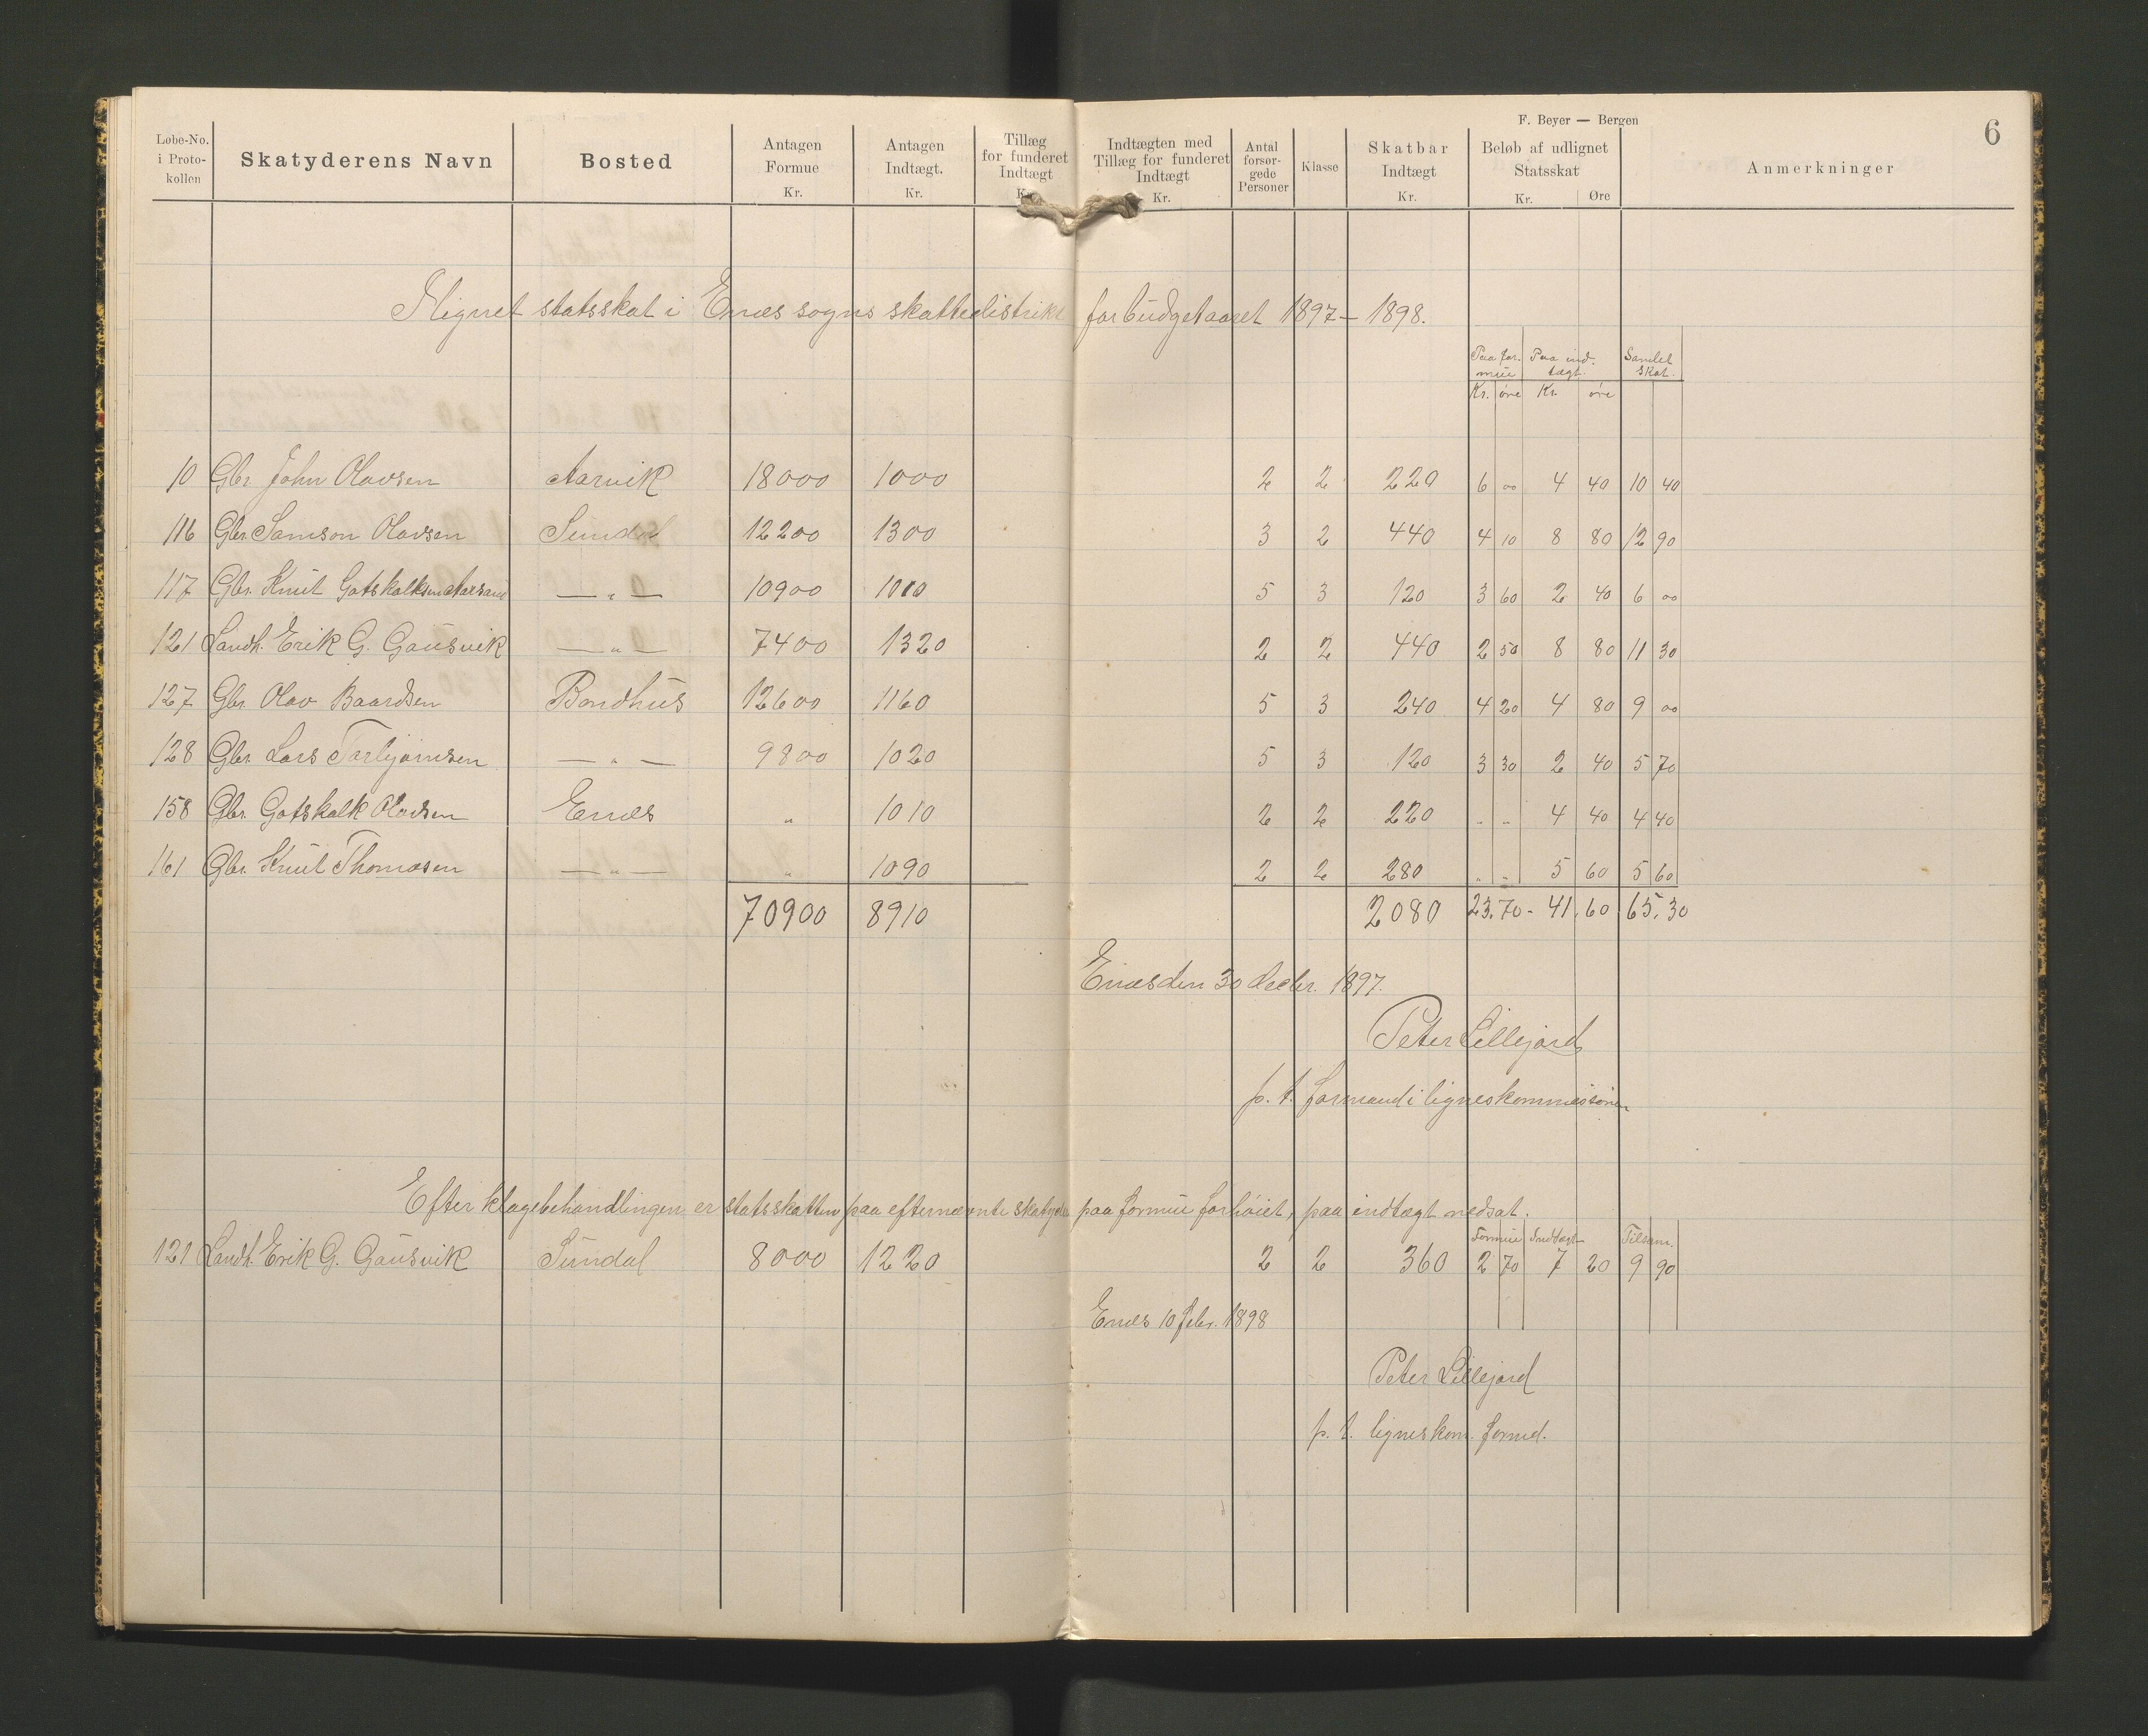 F. Beyer — Bergen
6
Løbe-No. i Proto-kollen | Skatyderens Navn | Bosted | Antagen Formue Kr. | Antagen Indtægt. Kr. | Tillæg for funderet Indtægt Kr. | Indtægten med Tillæg for funderet Indtægt Kr. | Antal forsør-gede Personer | Klasse | Skatbar Indtægt Kr. | Beløb af udlignet Statsskat Kr. Øre | Anmerkninger
Ilignet statsskat i Enæs sogns skattedistrikt for budgetaaret 1897–1898.
Paa for-mue Kr. øre | Paa ind-tægt. Kr. øre | Samlet skat.
10 Gbr. John Olavsen Aarvik 18000 1000 2 2 220 6 00 4 40 10 40
116 Gbr. Samson Olavsen Sundal 12200 1300 3 2 440 4 10 8 80 12 90
117 Gbr. Knut Gotskalksen Aarsand — " — 10900 1010 5 3 120 3 60 2 40 6 00
121 Landh. Erik G. Gausvik — " — 7400 1320 2 2 440 2 50 8 80 11 30
127 Gbr. Olav Baardsen Bondhus 12600 1160 5 3 240 4 20 4 80 9 00
128 Gbr. Lars Torbjørnsen — " — 9800 1020 5 3 120 3 30 2 40 5 70
158 Gbr. Gotskalk Olavsen Enæs " 1010 2 2 220 " " 4 40 4 40
161 Gbr. Knut Thomasen — " — " 1090 2 2 280 " " 5 60 5 60
70900 8910 2080 23.70 - 41.60 65.30
Enæs den 30 decbr. 1897.
Peter Lillejord
p. t. formand i ligneskommissionen
Efter klagebehandlingen er statsskatten paa efternævnte skatyder paa formue forhøiet, paa indtægt nedsat.
Formue Indtægt Tilsam.
121 Landh. Erik G. Gausvik Sundal 8000 1220 2 2 360 2 70 7 20 9 90
Enæs 10 febr. 1898
Peter Lillejord
p. t. ligneskom. formd.